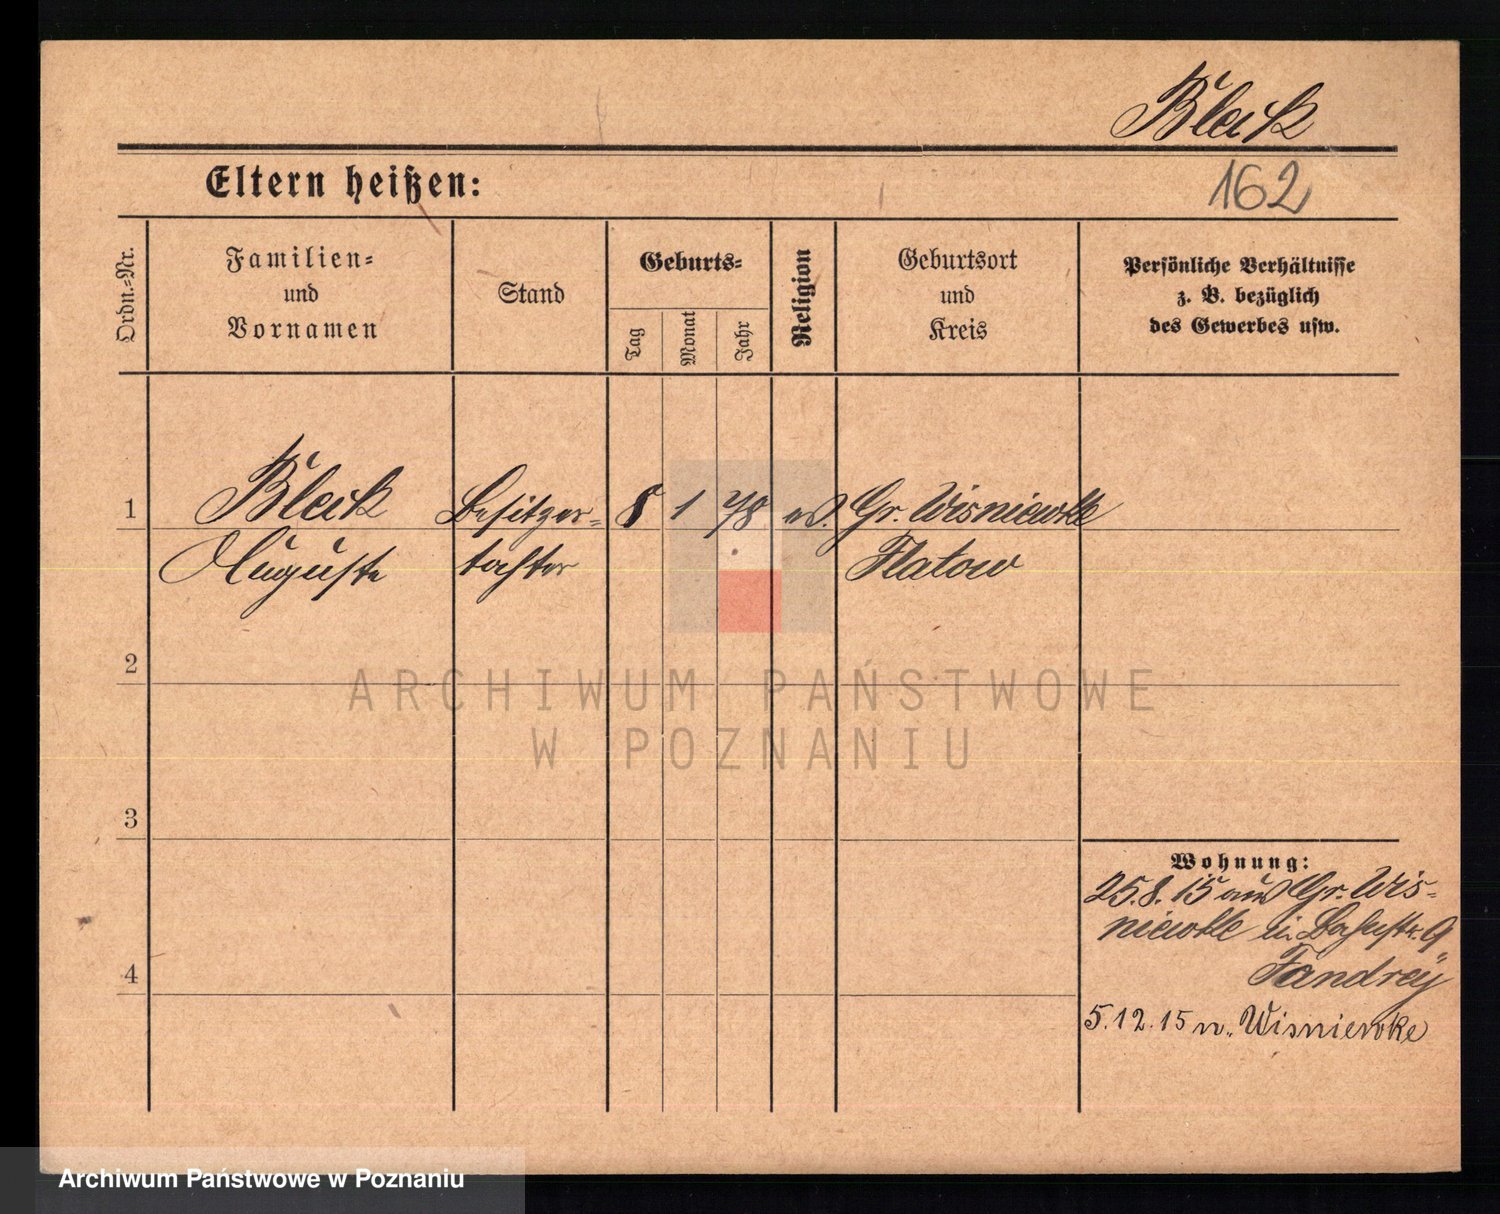 Bleik
Eltern heißen:
162
Ordn.-Nr.
Familien-
und
Vornamen
Stand
Geburts-
Tag
Monat
Jahr
Religion
Geburtsort
und
Kreis
Persönliche Verhältnisse
z. B. bezüglich
des Gewerbes usw.
1
Bleik
Auguste
Besitzer-
tochter
8
1
78
ev.
Gr. Wisniewke
Flatow
2
ARCHIWUM PAŃSTWOWE
W POZNANIU
3
4
Wohnung:
25.8.15 aus Gr. Wis-
niewke in 9
Fandrey
5.12.15 n. Wisniewke
Archiwum Państwowe w Poznaniu